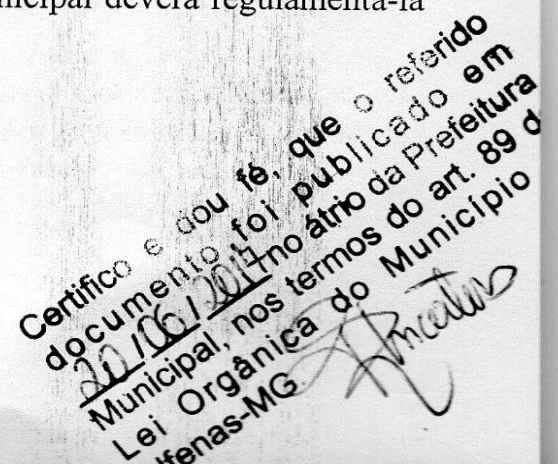 nicipal deverá regulamentá-la
Certifico e dou fé, que o referido
documento foi publicado em
20/06/2017 no átrio da Prefeitura
Municipal, nos termos do art. 89 d
Lei Orgânica do Município
lfenas-MG.